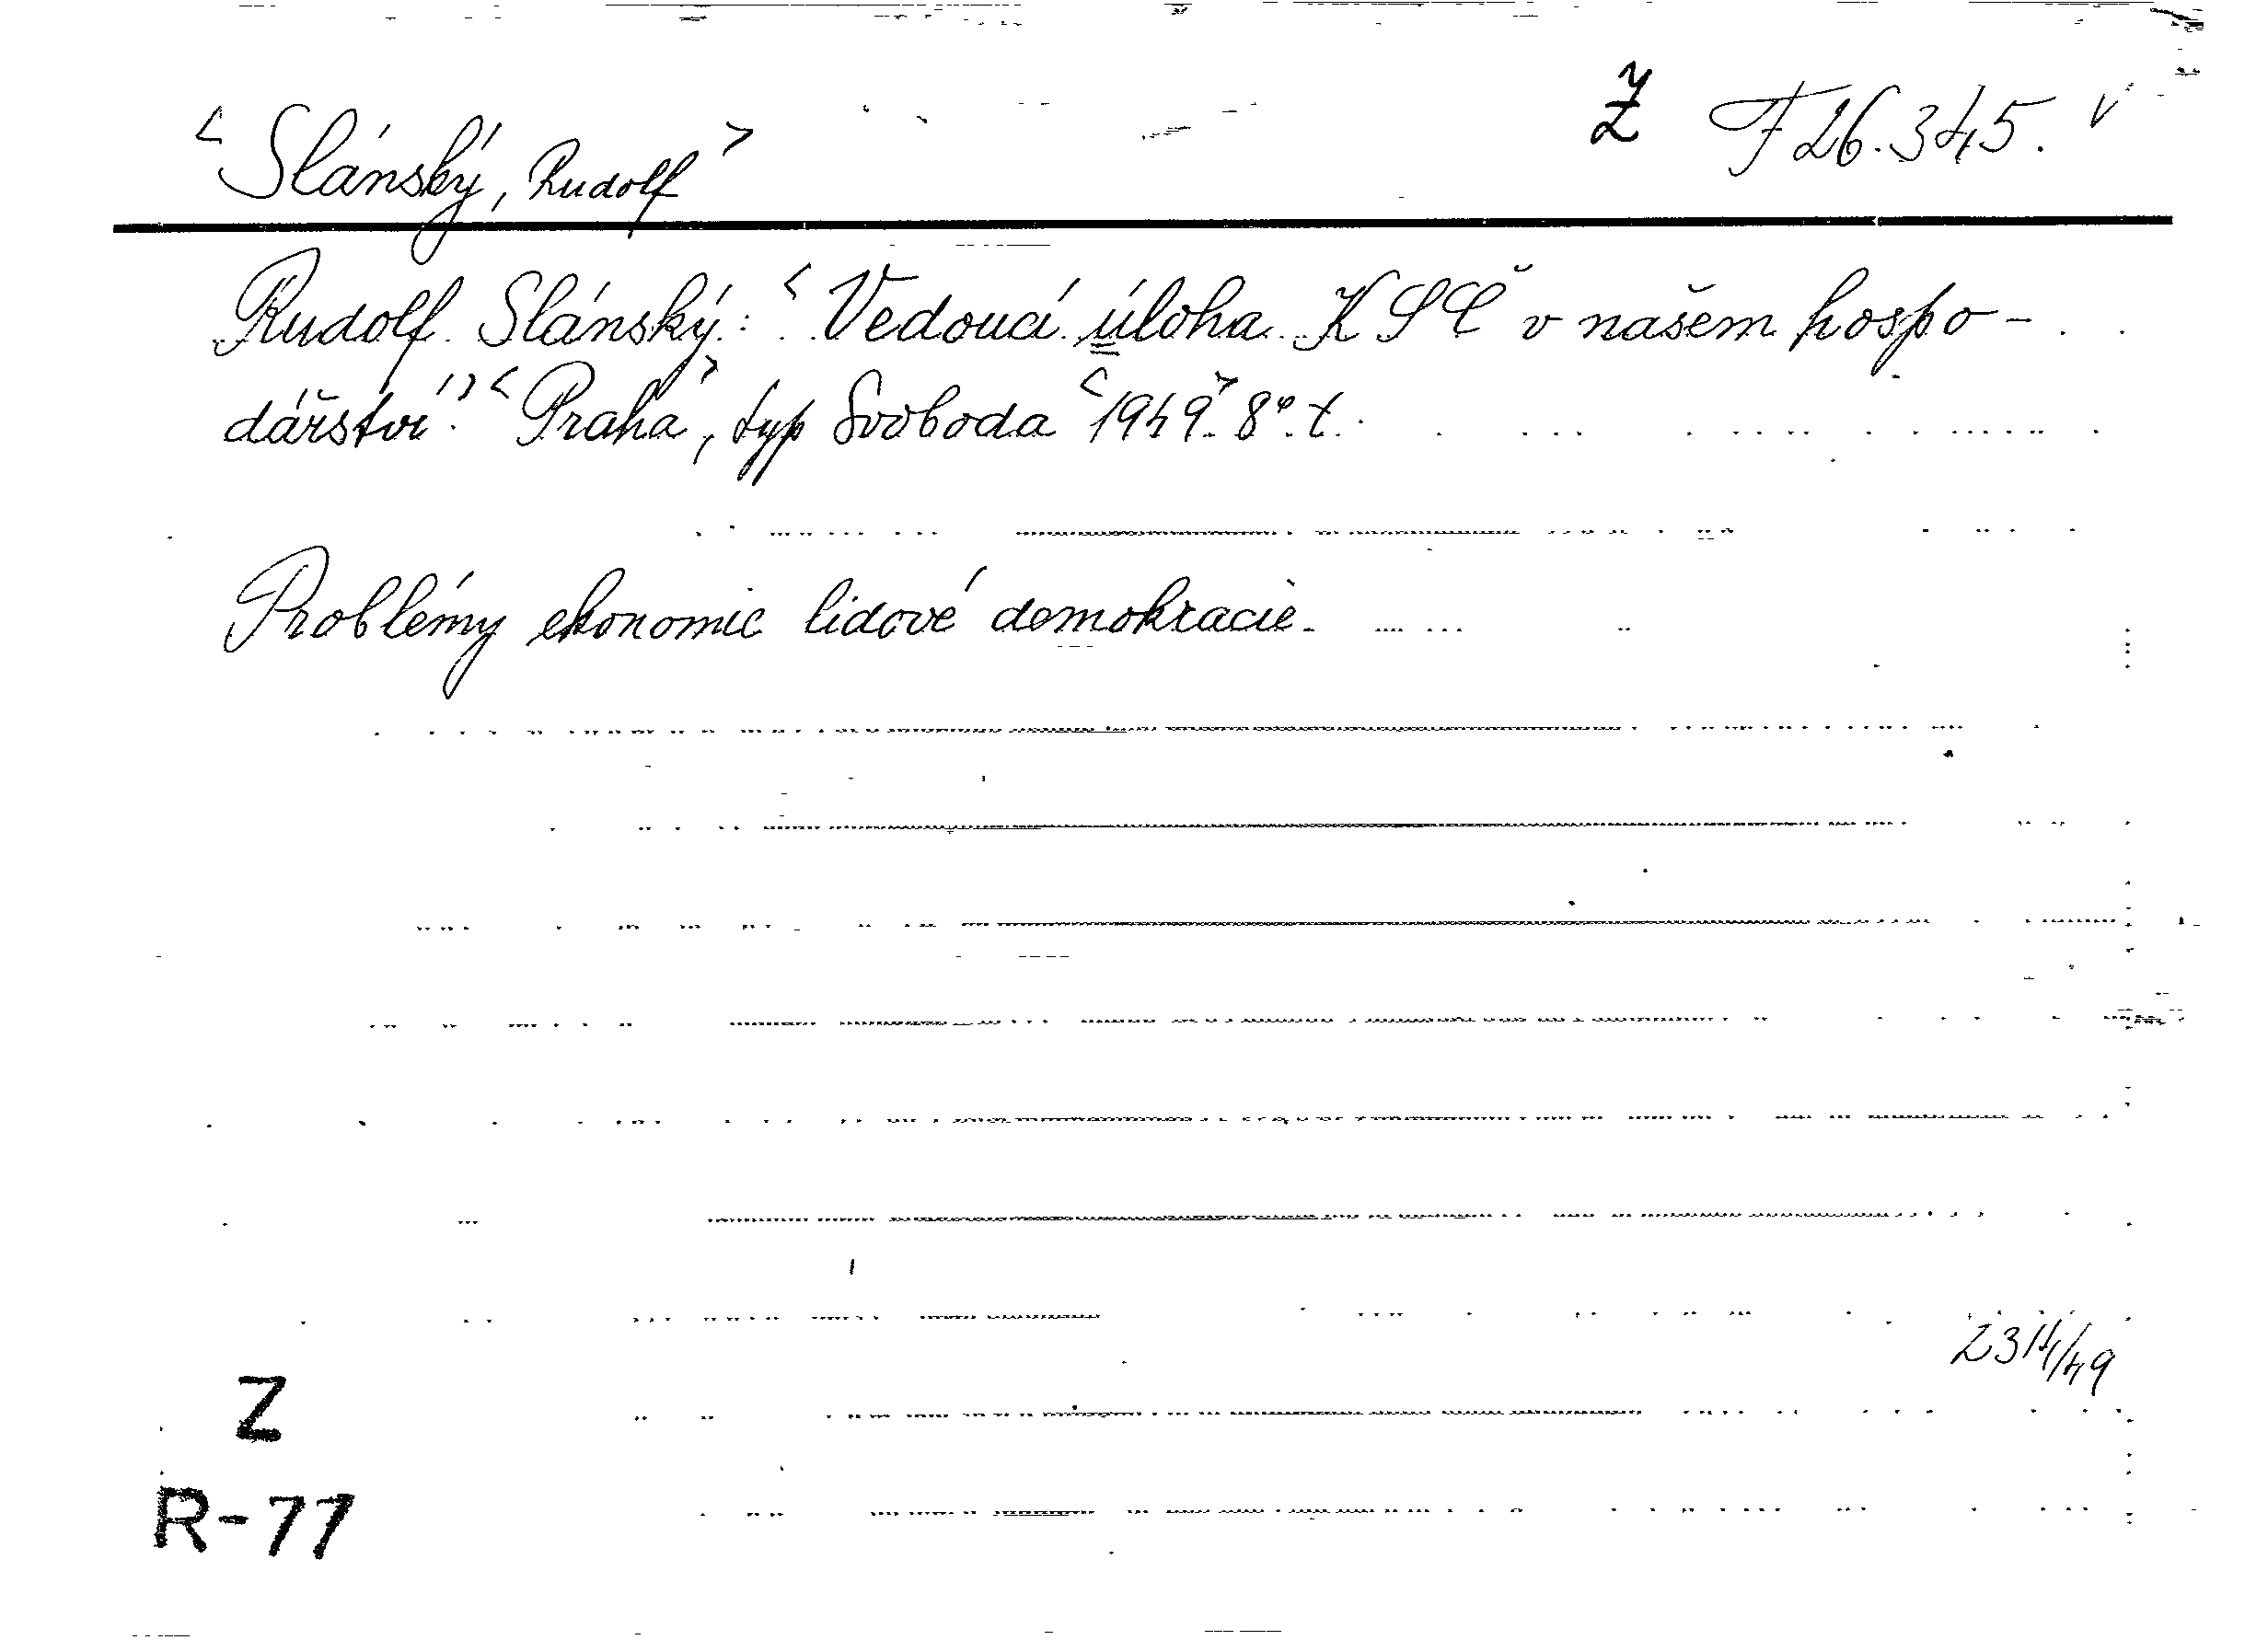 Z F 26.345. v
<Slánský, Rudolf>
Rudolf Slánský: <Vedoucí úloha KSČ v našem hospo-
dářství.><Praha>, typ Svoboda <1949>. 8°. t.
Problémy ekonomic lidové demokracie.
Z
R-77